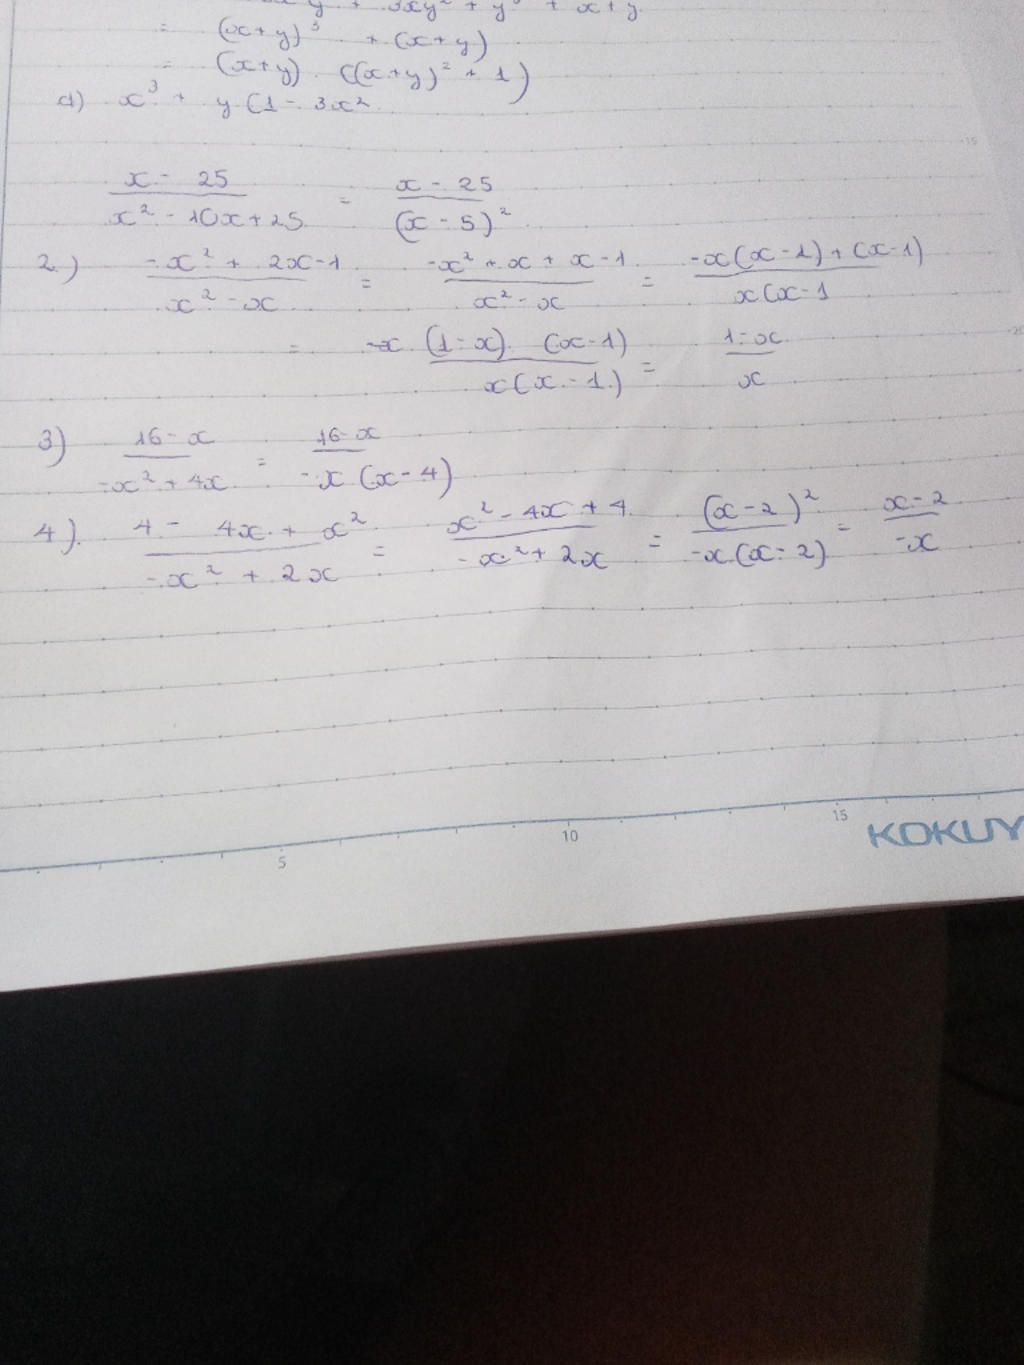 y + 3xy² + y³ + x+y
= (x+y)³ + (x+y)
= (x+y) . ((x+y)² + 1)
d) x³ + y(1 - 3x²
15
x - 25 / x² - 10x + 25 = x - 25 / (x - 5)²
2.) -x² + 2x - 1 / x² - x = -x² + x + x - 1 / x² - x = -x(x-1) + (x-1) / x(x-1
= (1-x) (x-1) / x(x-1) = 1-x / x
20
3) 16-x / -x² + 4x = 16-x / -x(x-4)
4). 4 - 4x + x² / -x² + 2x = x² - 4x + 4 / -x² + 2x = (x-2)² / -x(x-2) = x-2 / -x
5 10 15
KOKUY